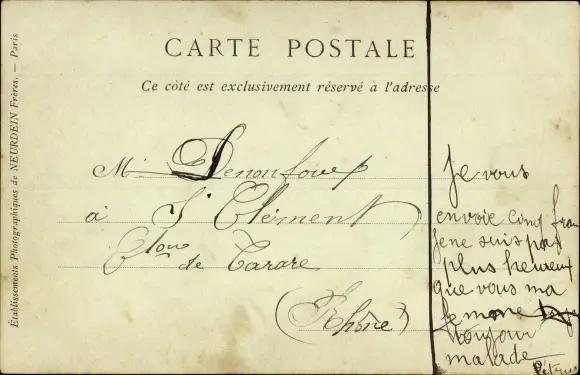 CARTE POSTALE
Ce côté est exclusivement réservé à l'adresse
Établissements Photographiques de NEURDEIN Frères. — Paris
Mr
à St Clément
de Tarare
(Rhône)
Je vous
envoie cinq fran
je ne suis pas
plus heureux
que vous ma
femme
toujour
malade